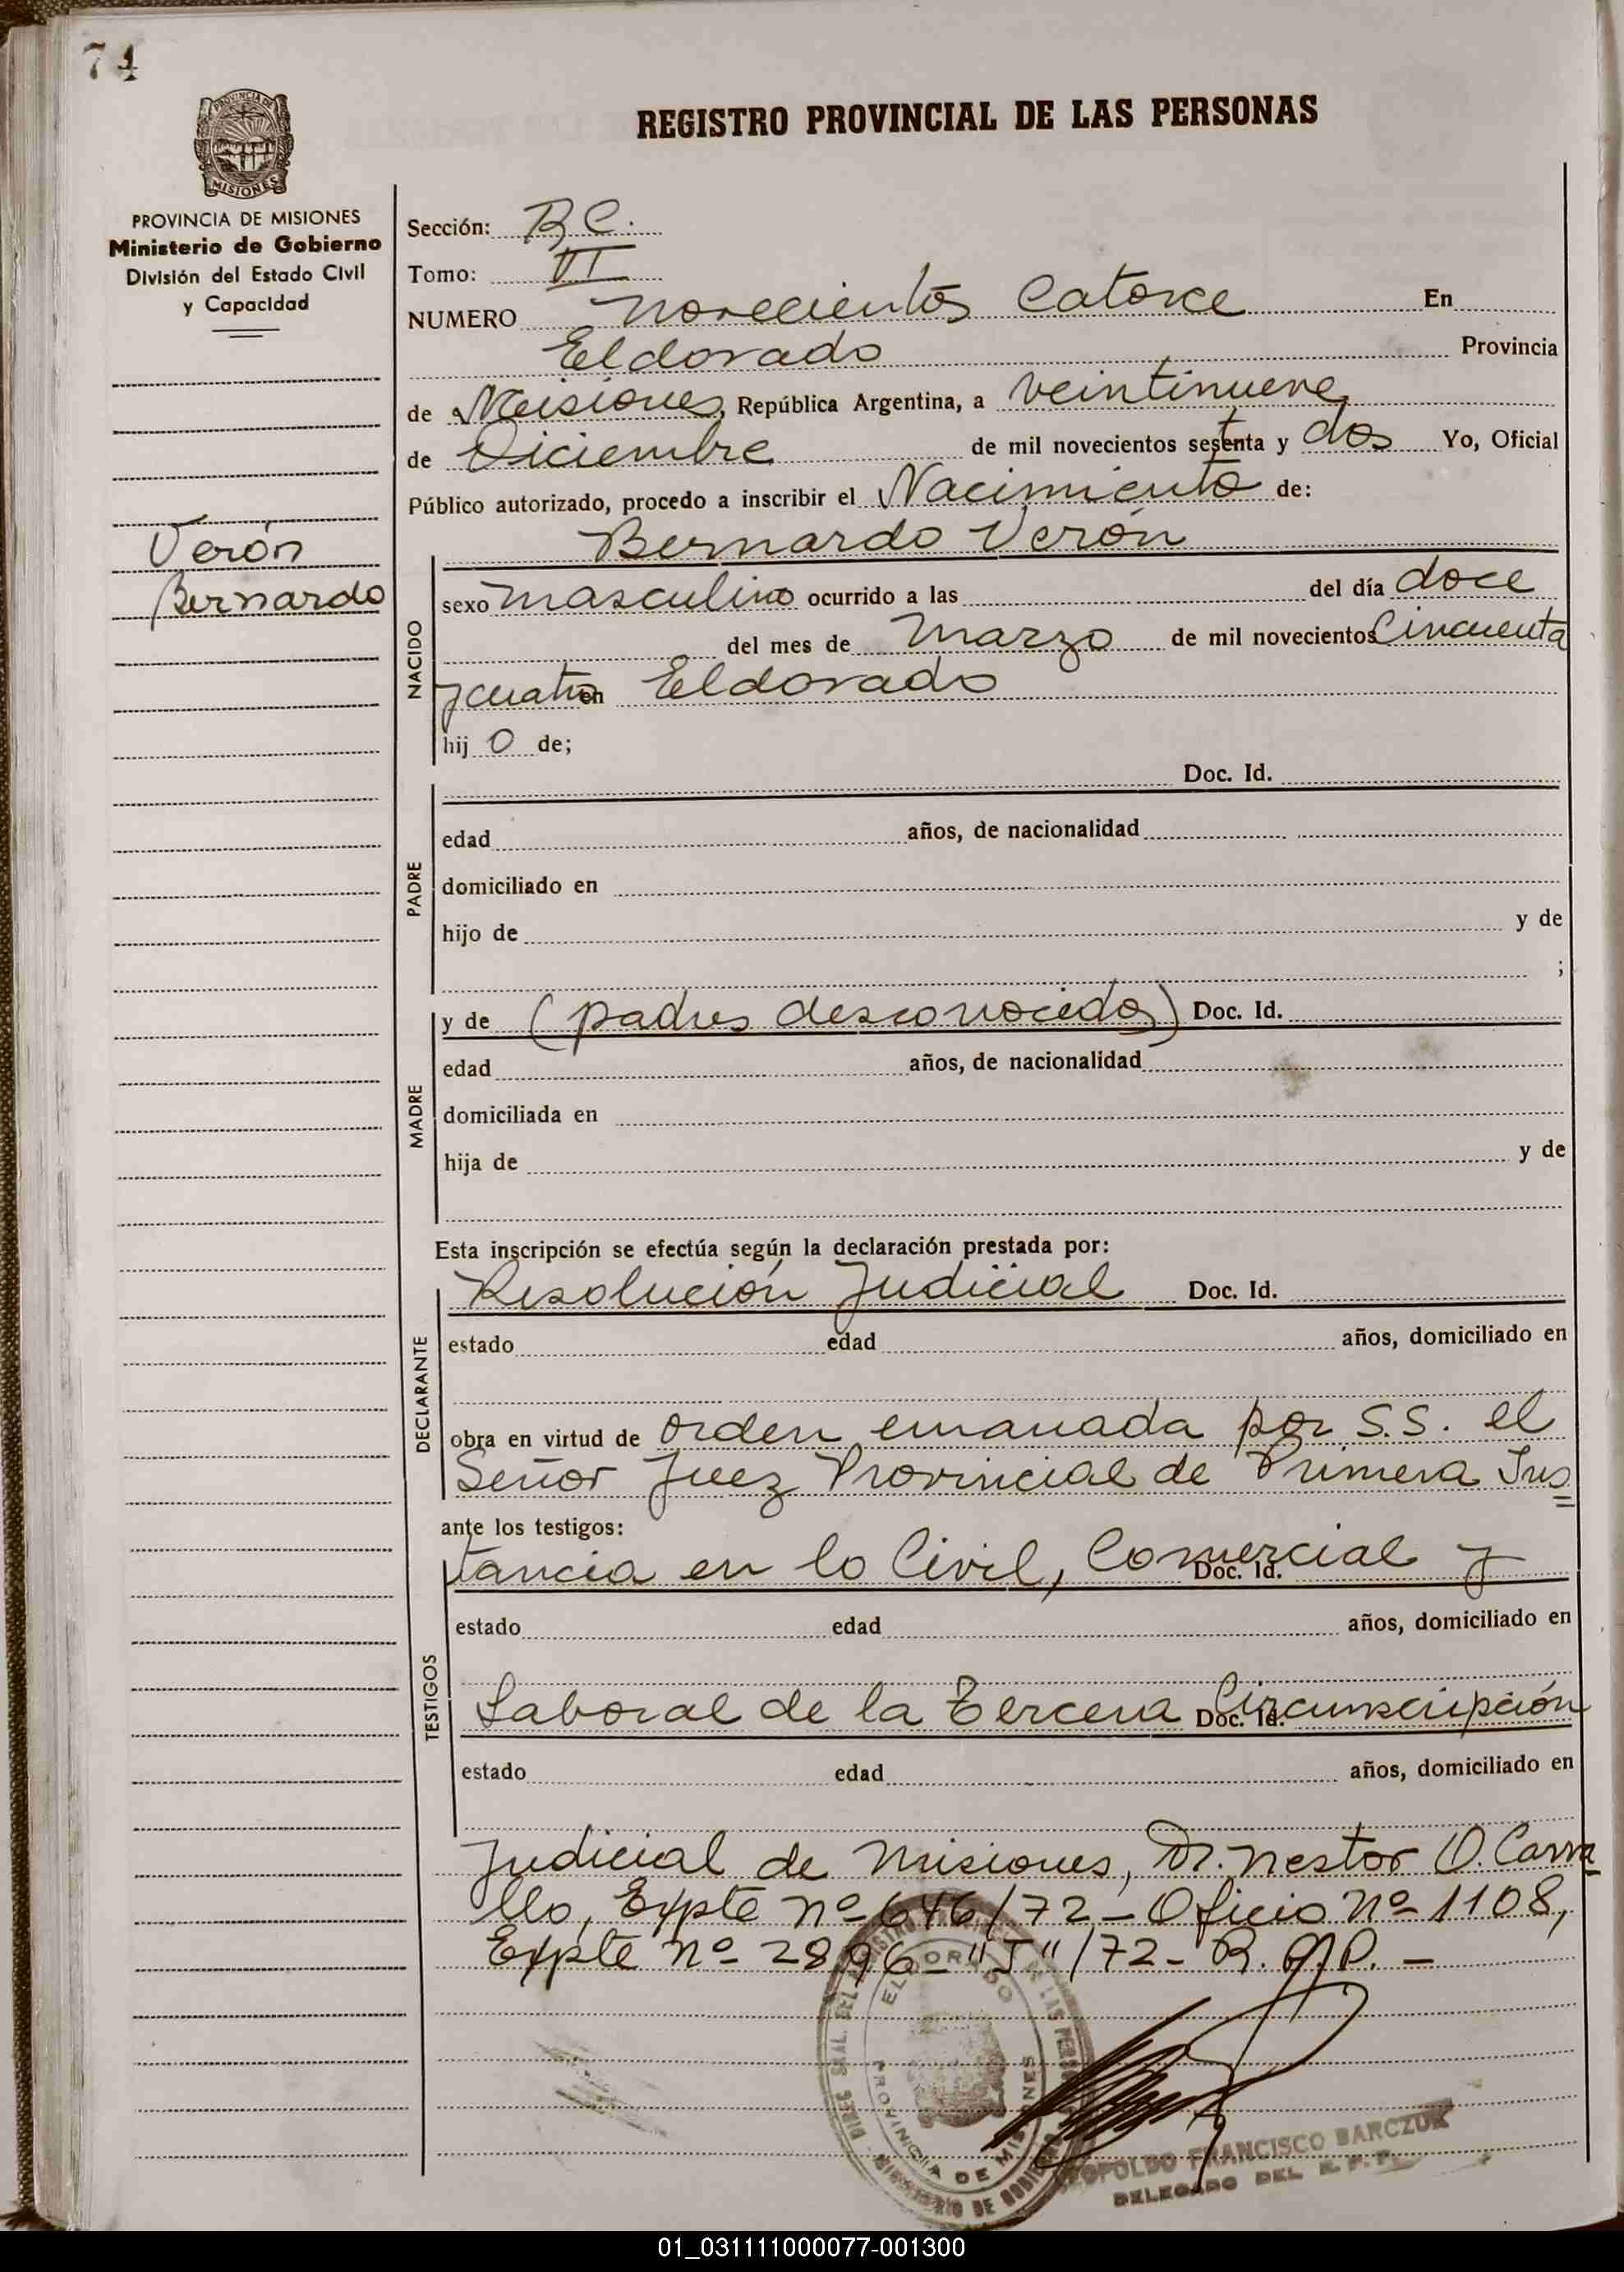 74
PROVINCIA DE MISIONES
PROVINCIA DE MISIONES
Ministerio de Gobierno
División del Estado Civil
y Capacidad
Verón
Bernardo
REGISTRO PROVINCIAL DE LAS PERSONAS
Sección: R C.
Tomo: VI
NUMERO novecientos catorce En
Eldorado Provincia
de Misiones, República Argentina, a veintinueve
de Diciembre de mil novecientos setenta y dos Yo, Oficial
Público autorizado, procedo a inscribir el Nacimiento de:
Bernardo Verón
NACIDO
sexo masculino ocurrido a las del día doce
del mes de Marzo de mil novecientos Cincuenta
y cuatro en Eldorado
hij o de;
PADRE
Doc. Id.
edad años, de nacionalidad
domiciliado en
hijo de y de
;
MADRE
y de (padres desconocidos) Doc. Id.
edad años, de nacionalidad
domiciliada en
hija de y de
Esta inscripción se efectúa según la declaración prestada por:
DECLARANTE
Resolución Judicial Doc. Id.
estado edad años, domiciliado en
obra en virtud de orden emanada por S.S. el
Señor Juez Provincial de Primera Ins=
ante los testigos:
TESTIGOS
tancia en lo Civil, Comercial y Doc. Id.
estado edad años, domiciliado en
Laboral de la Tercera Circunscripción Doc. Id.
estado edad años, domiciliado en
Judicial de Misiones, Dr. Nestor O. Carva
llo, Expte nº 646/72 - Oficio nº 1108,
Expte nº 2896 - "J" /72 - R.P.P. -
ELDORADO
PROVINCIA DE MISIONES
LEOPOLDO FRANCISCO BARCZUK
DELEGADO DEL R. P. P.
01_031111000077-001300